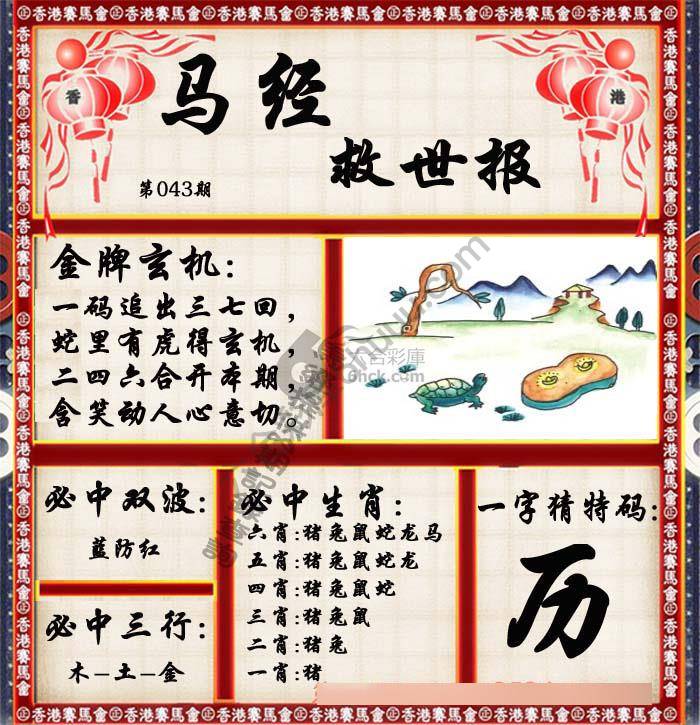 香港賽馬會㊣香港賽馬會㊣香港賽馬會
香 港
马经
救世报
第043期
金牌玄机:
一码追出三七回，
蛇里有虎得玄机，
二四六合开本期，
含笑动人心意切。
六合彩庫
6hck.com
必中双波:
蓝防红
必中三行:
木-土-金
必中生肖:
六肖:猪兔鼠蛇龙马
五肖:猪兔鼠蛇龙
四肖:猪兔鼠蛇
三肖:猪兔鼠
二肖:猪兔
一肖:猪
一字猜特码:
历